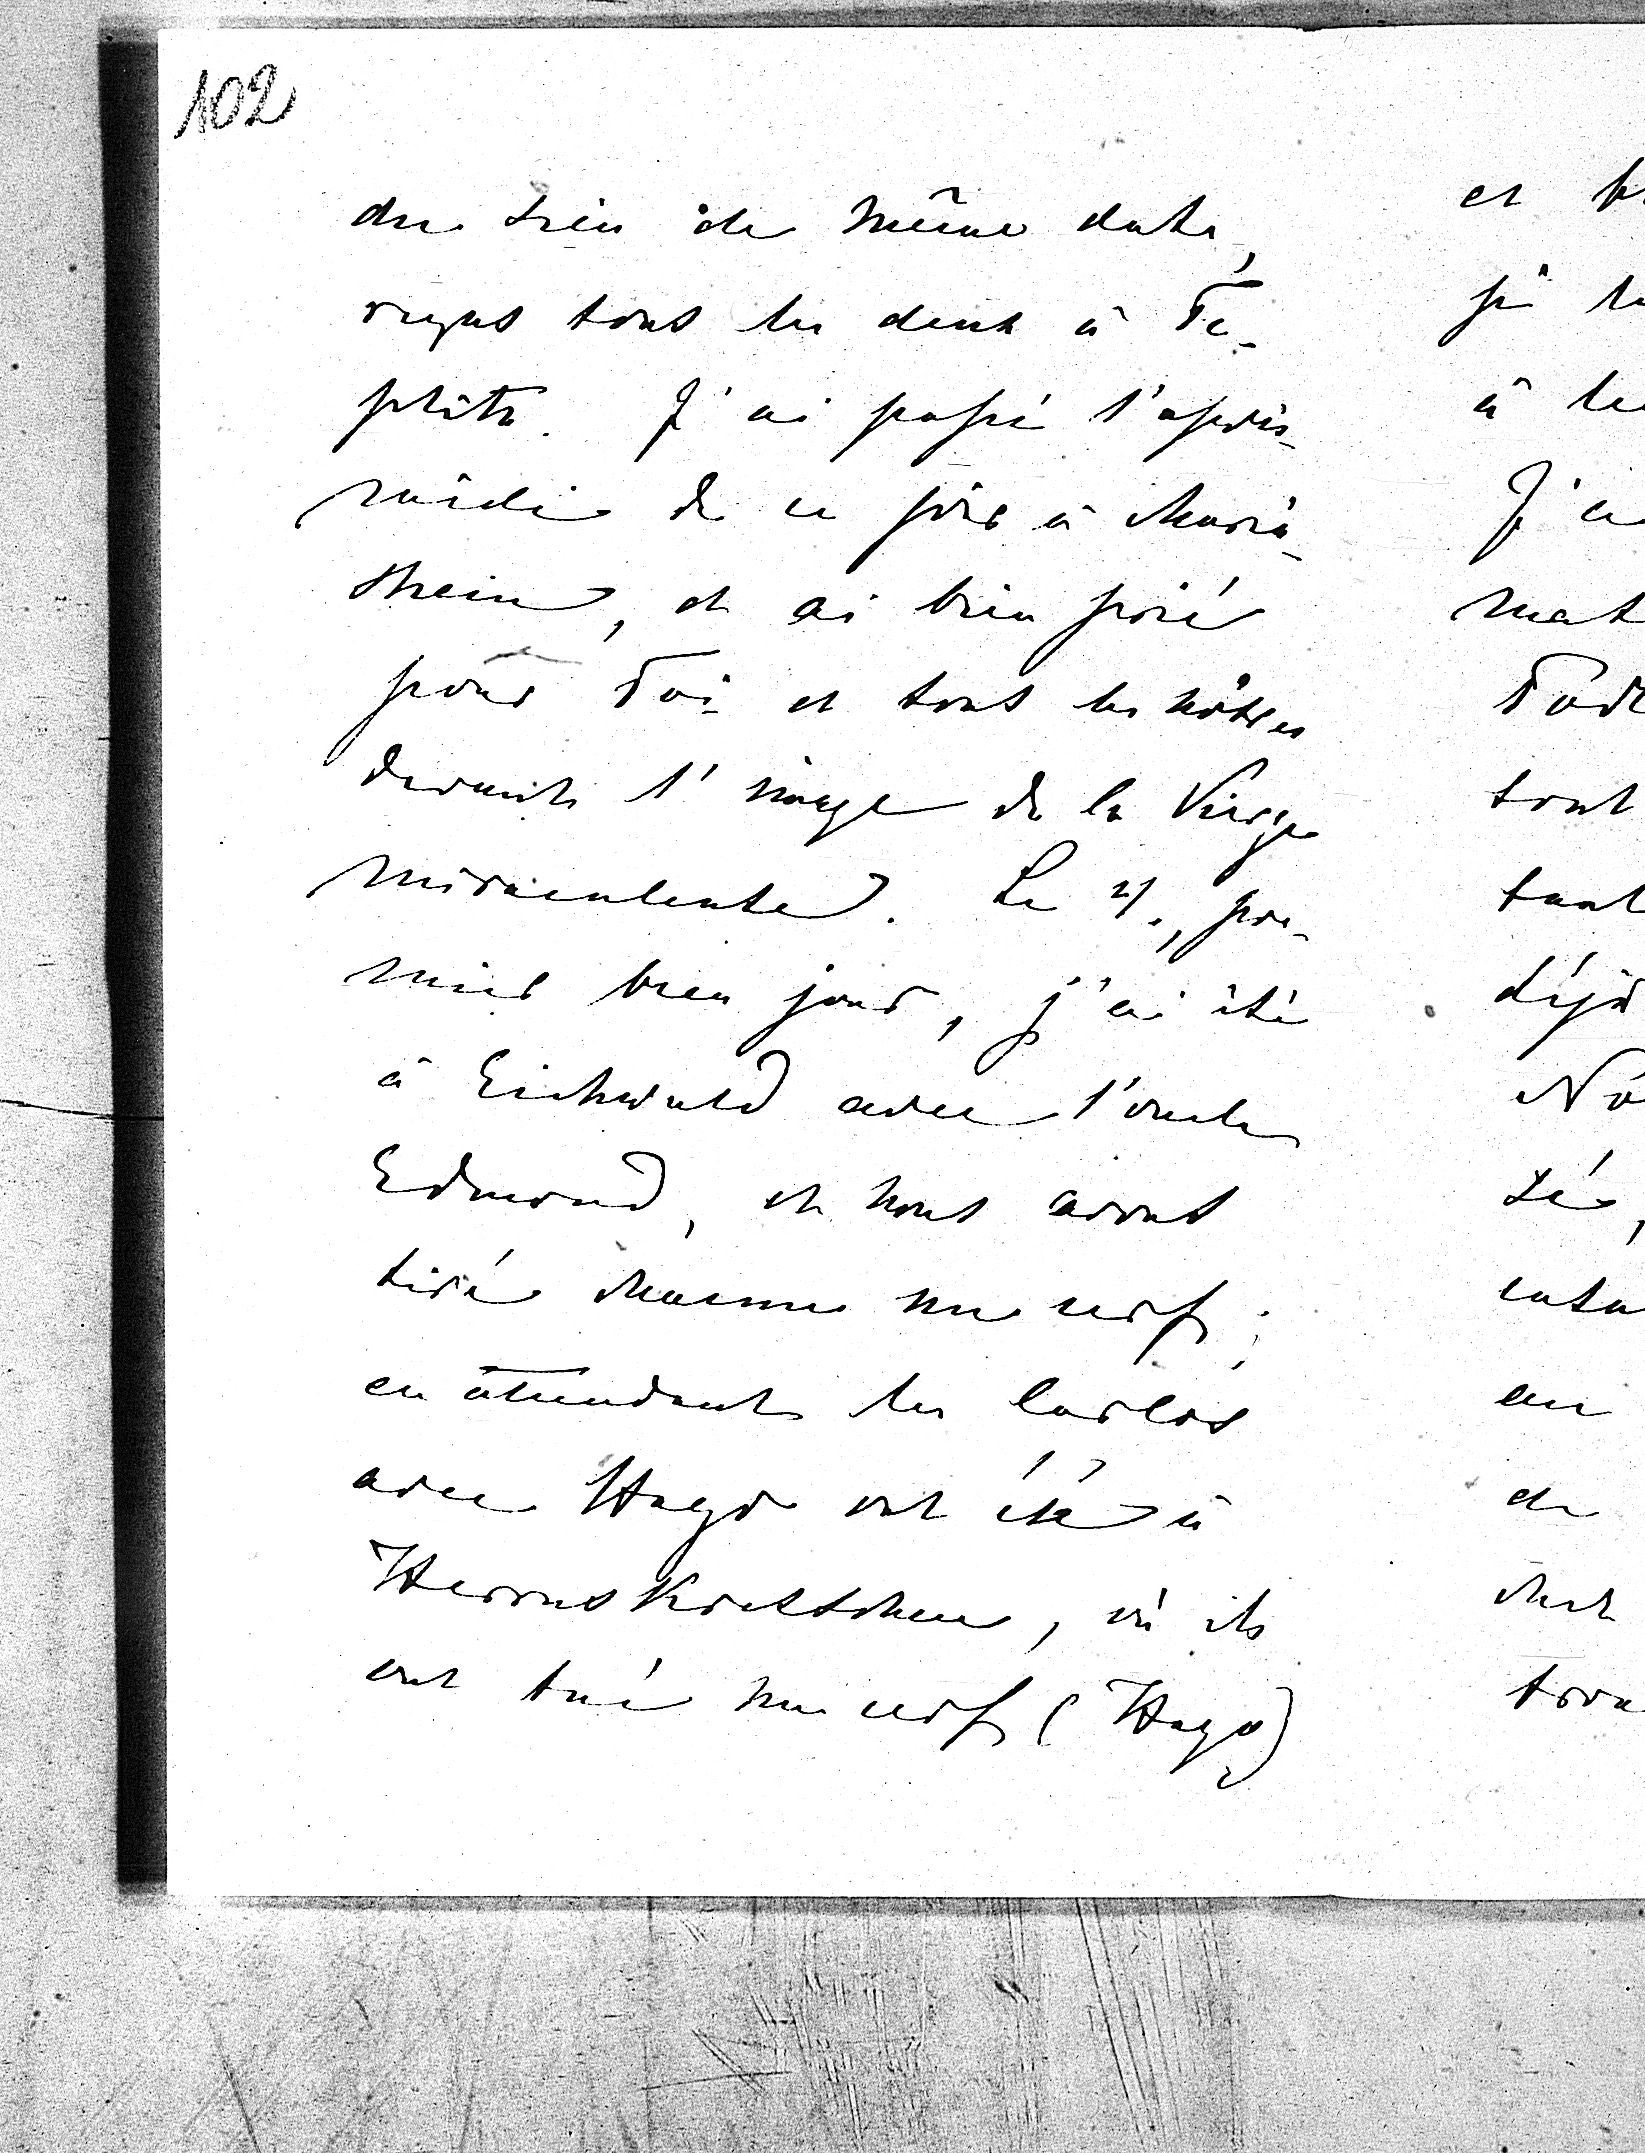 102
du sien de même date,
reçus tous les deux à Te-
plitz. J'ai passé l'après-
midi de ce jour à Maria-
schein, et ai bien prié
pour Toi et tous les nôtres
devant l'image de la Vierge
miraculeuse. Le 21, pre-
mier beau jour, j'ai été
à Eichwald avec l'oncle
Edmond, et nous avons
tiré chacun un cerf;
en attendant les Carlos
avec Hugo ont été à
Herrnskretschen, où ils
ont tué un cerf (Hugo)
et
à
J'ai
mat
tout
tant
déjà
au
de